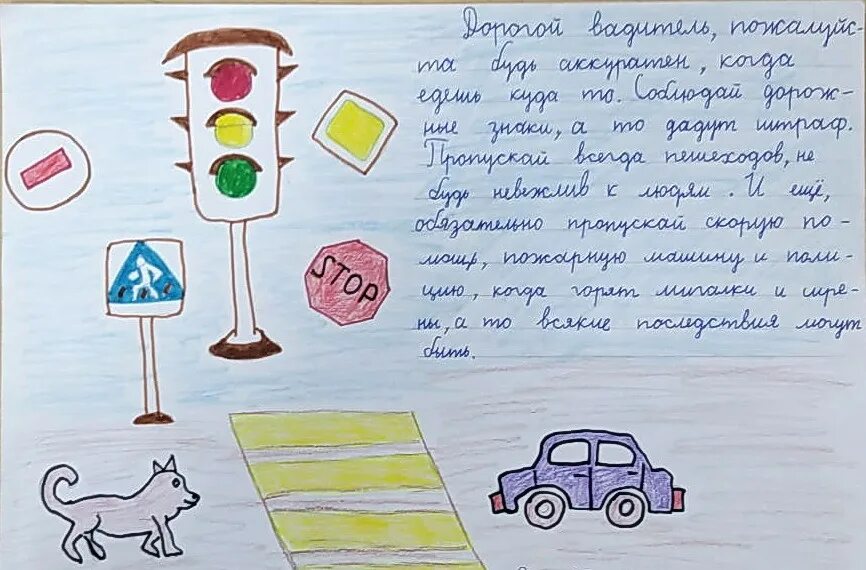 Дорогой вадитель, пожалуйс-
та будь аккуратен, когда
едешь куда то. Соблюдай дорож-
ные знаки, а то дадут штраф.
Пропускай всегда пешеходов, не
будь невежлив к людям. И ещё,
обязательно пропускай скорую по-
мощь, пожарную машину и поли-
цию, когда горят мигалки и сире-
ны, а то всякие последствия могут
быть.
STOP